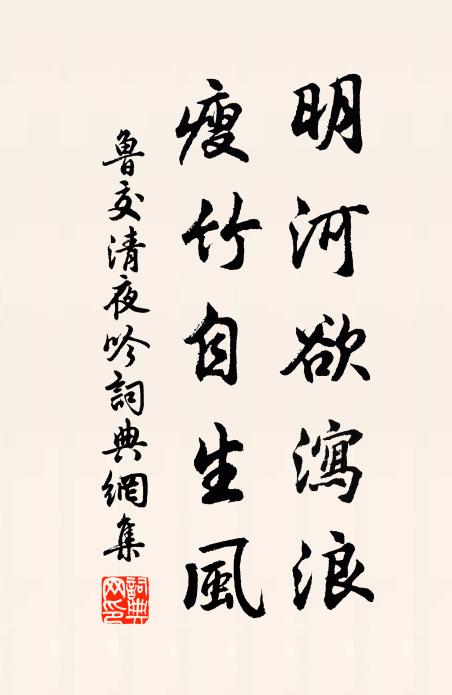 明河欲瀉浪
瘦竹自生風
魯交清夜吟詞典網集
詞典网印